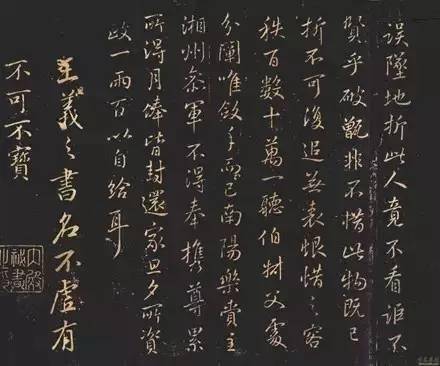 誤墜地折此人竟不看詎不
賢乎破甑非不惜此物既已
折不可復追無哀恨惜之容
秩百數十萬一聽伯樹父處
分闌唯斂手而已南陽樂賞主
湘州參軍不得奉携尊累
所得月俸皆封還家旦夕所資
政一兩百以自給耳
王羲之書名不虛有
不可不寶